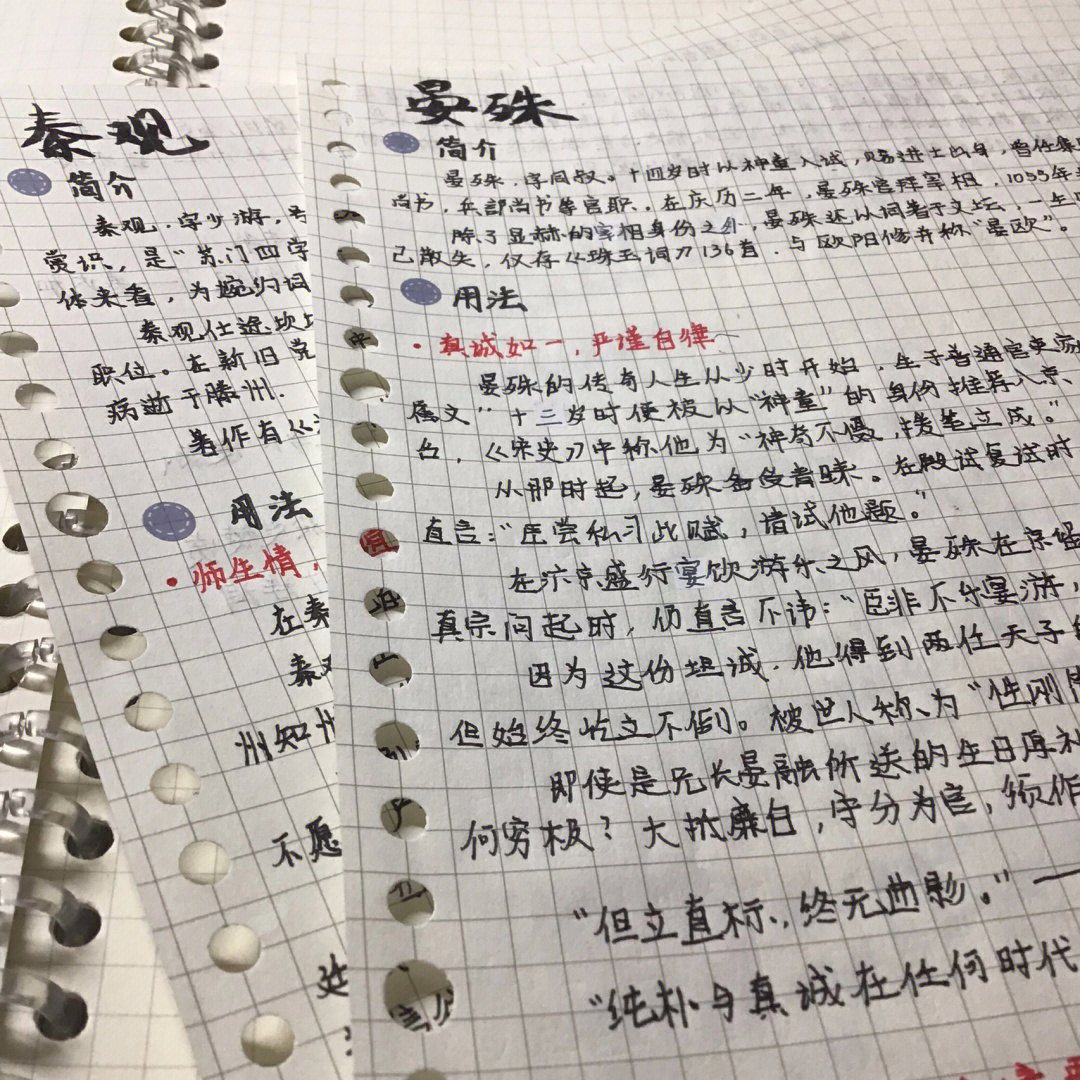 秦观
简介
秦观，字少游，
赏识，是“苏门四学
体来看，为婉约词
秦观仕途坎
职位。在新旧党
病逝于藤州.
著作有《
用法
·师生情，
在秦
秦观
州知州
不愿
晏殊
简介
晏殊，字同叔。十四岁时以神童入试，赐进士出身，曾任集
尚书，兵部尚书等官职。在庆历二年，晏殊官拜宰相，1055年
除了显赫的宰相身份之外，晏殊还以词著于文坛，一生
已散失，仅存《珠玉词》136首. 与欧阳修并称“晏欧”。
用法
·真诚如一，严谨自律
晏殊的传奇人生从少时开始，生于普通官吏家
属文”十三岁时便被以“神童”的身份推荐入京、
台，《宋史》中称他为“神奇不慑，援笔立成。”
从那时起，晏殊备受青睐。在殿试复试时
直言：“臣尝私习此赋，请试他题。”
在汴京盛行宴饮游乐之风，晏殊在京
真宗问起时，仍直言不讳：“臣非不乐宴游，
因为这份坦诚. 他得到两任天子
但始终屹立不倒。被世人称为“性刚
即使是兄长晏融所送的生日厚礼
何穷极？大抵廉白，守分为官，须作
“但立直标，终无曲影。”—
“纯朴与真诚在任何时代